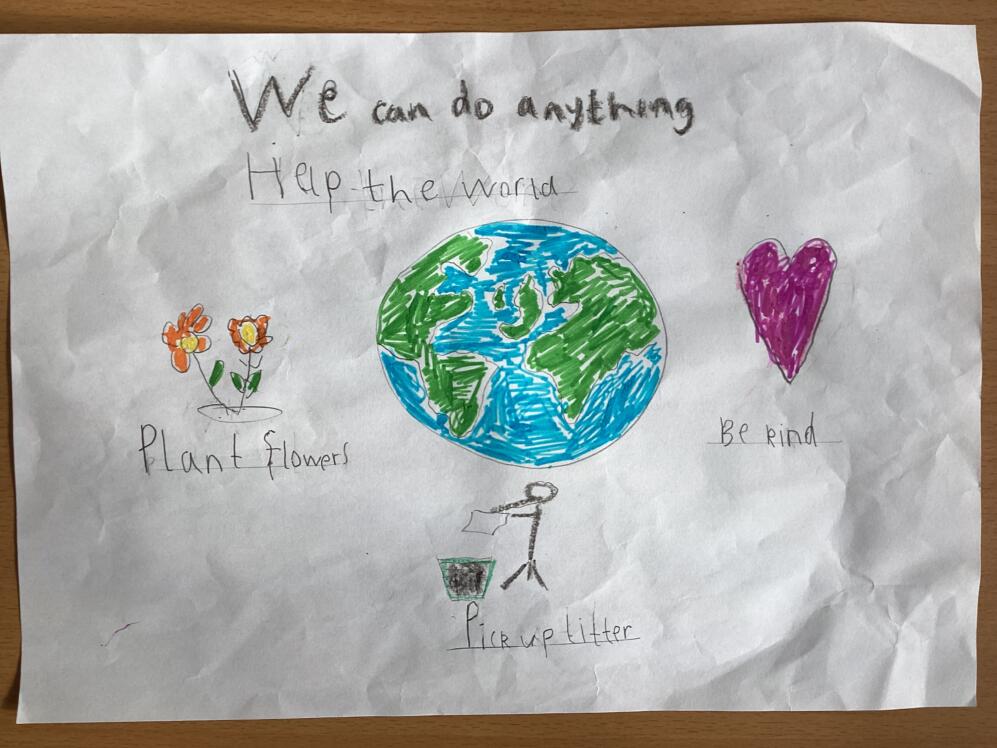 We can do anything
Help the World
Plant flowers
Be kind
Pick up litter